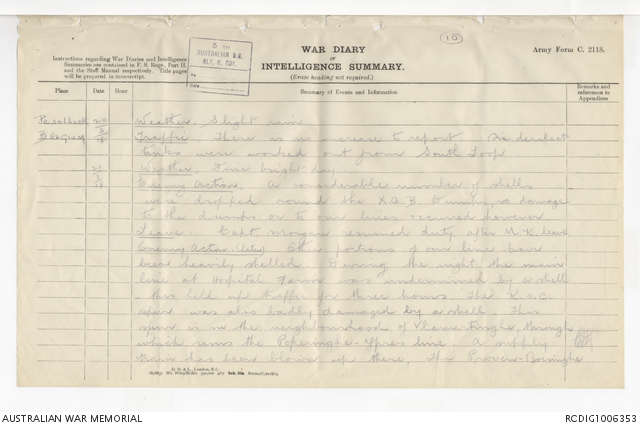 (10)
WAR DIARY
or
INTELLIGENCE SUMMARY.
(Erase heading not required.)
Army Form C. 2118.
Instructions regarding War Diaries and Intelligence
Summaries are contained in F. S. Regs., Part II.
and the Staff Manual respectively. Title pages
will be prepared in manuscript.
5 TH
AUSTRALIAN
Date
Place
Date
Hour
Summary of Events and Information
Remarks and
references to
Appendices
Weather. Slight rain
Traffic. There is no increase to report. Six derelict
tanks were worked out from South Loop
Weather. Fine bright day
Enemy Action. A considerable number of shells
were dropped round the no damage
to the dumps or to our lines occurred however
Leave. Capt Morgan resumed duty after U.K. leave
Enemy Action (later) Other portions of our line have
been heavily shelled. During the night the main
line at Hospital Farm was undermined by a shell
this held up traffic for three hours. The
spur was also badly damaged by a shell. This
spur is in the neighbourhood of Vlamertinghe through
which runs the Poperinghe-Ypres line. A supply
train has been blown up there, the Proven-Boesinghe
D. D. & L., London, E.C.
AUSTRALIAN WAR MEMORIAL
RCDIG1006353